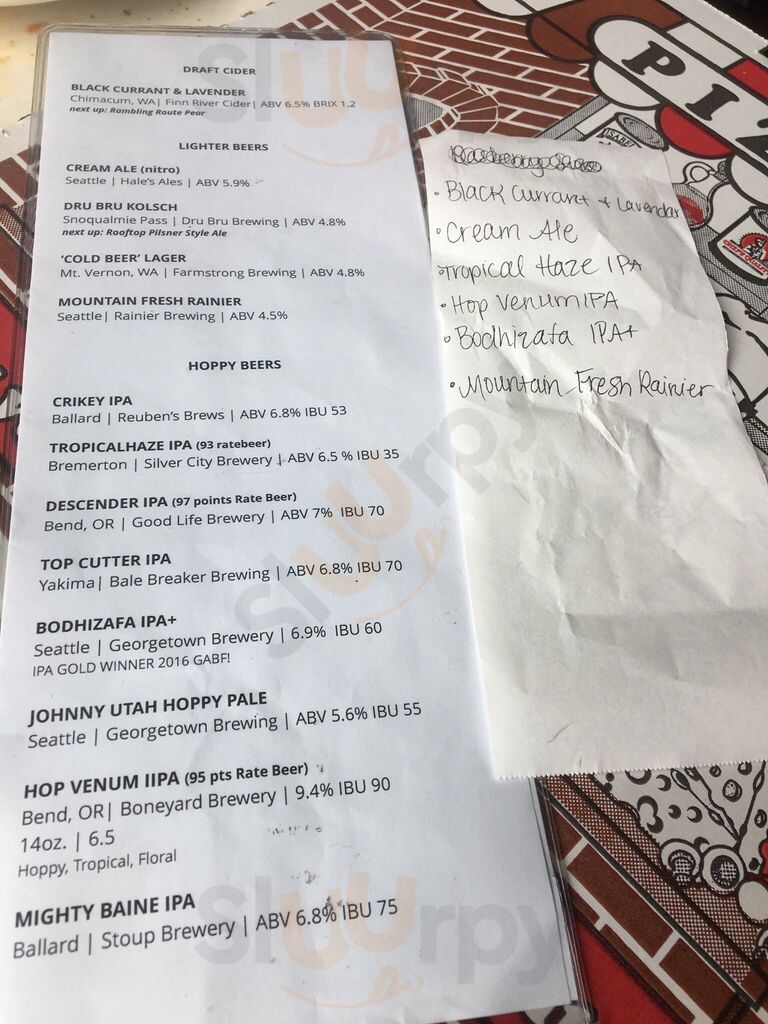 DRAFT CIDER
BLACK CURRANT & LAVENDER
Chimacum, WA| Finn River Cider| ABV 6.5% BRIX 1.2
next up: Rambling Route Pear
LIGHTER BEERS
CREAM ALE (nitro)
Seattle | Hale's Ales | ABV 5.9%
DRU BRU KOLSCH
Snoqualmie Pass | Dru Bru Brewing | ABV 4.8%
next up: Rooftop Pilsner Style Ale
'COLD BEER' LAGER
Mt. Vernon, WA | Farmstrong Brewing | ABV 4.8%
MOUNTAIN FRESH RAINIER
Seattle| Rainier Brewing | ABV 4.5%
HOPPY BEERS
CRIKEY IPA
Ballard | Reuben's Brews | ABV 6.8% IBU 53
TROPICALHAZE IPA (93 ratebeer)
Bremerton | Silver City Brewery | ABV 6.5 % IBU 35
DESCENDER IPA (97 points Rate Beer)
Bend, OR | Good Life Brewery | ABV 7% IBU 70
TOP CUTTER IPA
Yakima| Bale Breaker Brewing | ABV 6.8% IBU 70
BODHIZAFA IPA+
Seattle | Georgetown Brewery | 6.9% IBU 60
IPA GOLD WINNER 2016 GABF!
JOHNNY UTAH HOPPY PALE
Seattle | Georgetown Brewing | ABV 5.6% IBU 55
HOP VENUM IIPA (95 pts Rate Beer)
Bend, OR| Boneyard Brewery | 9.4% IBU 90
14oz. | 6.5
Hoppy, Tropical, Floral
MIGHTY BAINE IPA
Ballard | Stoup Brewery | ABV 6.8% IBU 75
• Black Currant + Lavendar
• Cream Ale
• Tropical Haze IPA
• Hop Venum IPA
• Bodhizafa IPA+
• Mountain Fresh Rainier
PIZ
Sluurpy
Sluurpy
Sluurpy